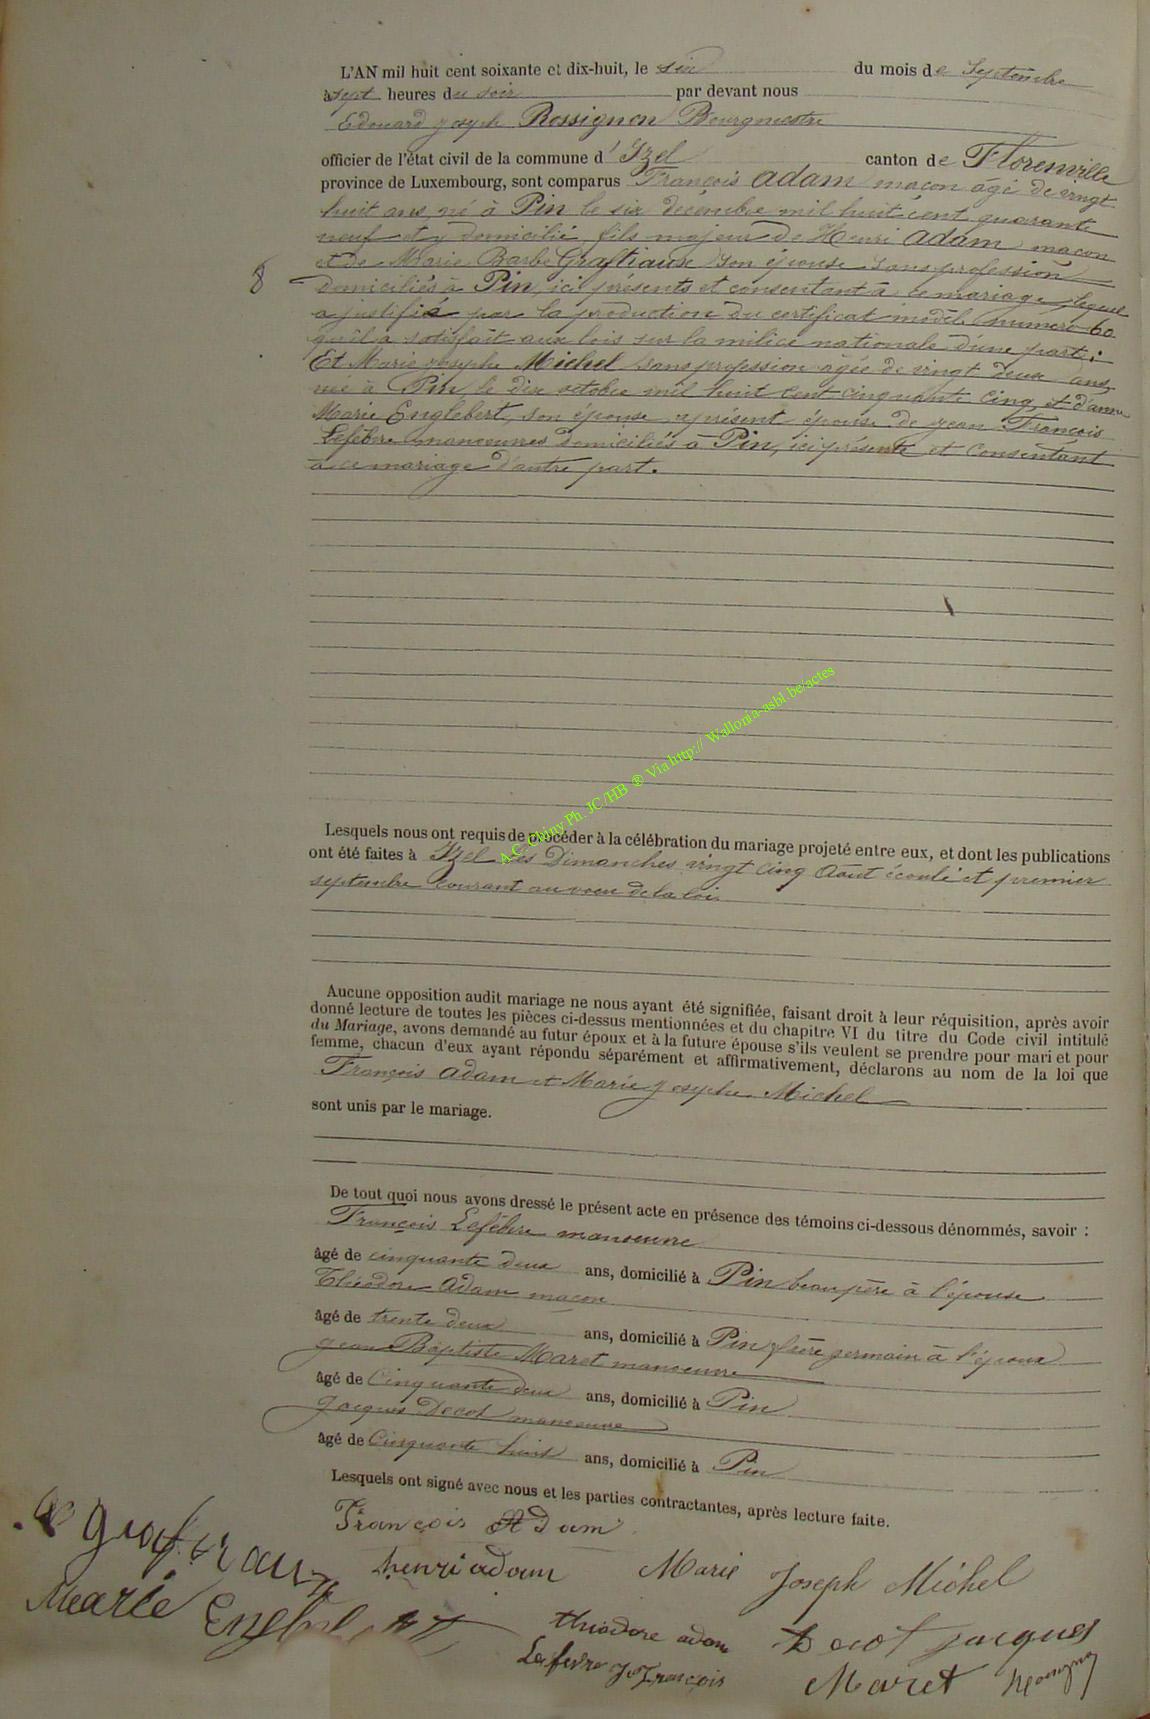 L'AN mil huit cent soixante et dix-huit, le six du mois de Septembre
à sept heures du soir par devant nous
Edouard Joseph Rossignon Bourgmestre
officier de l'état civil de la commune d' Izel canton de Florenville
province de Luxembourg, sont comparus François Adam maçon âgé de vingt
huit ans, né à Pin le six décembre mil huit cent quarante
neuf et y domicilié, fils majeur de Henri Adam maçon
et de Marie Barbe Graftiaux son épouse sans profession
8 domiciliés à Pin, ici présents et consentant à ce mariage, lequel
a justifié par la production du certificat modèle numéro 60
qu'il a satisfait aux lois sur la milice nationale d'une part;
Et Marie Josephe Michel sans profession âgée de vingt deux ans,
née à Pin le dix octobre mil huit cent cinquante cinq, et d'anne
Marie Englebert, son épouse, à présent épouse de Jean François
Lefèbre manoeuvres domiciliés à Pin, ici présente et consentant
à ce mariage d'autre part.
Lesquels nous ont requis de procéder à la célébration du mariage projeté entre eux, et dont les publications
ont été faites à Izel les Dimanches vingt cinq Août écoulé et premier
septembre courant au voeu de la loi
Aucune opposition audit mariage ne nous ayant été signifiée, faisant droit à leur réquisition, après avoir
donné lecture de toutes les pièces ci-dessus mentionnées et du chapitre VI du titre du Code civil intitulé
du Mariage, avons demandé au futur époux et à la future épouse s'ils veulent se prendre pour mari et pour
femme, chacun d'eux ayant répondu séparément et affirmativement, déclarons au nom de la loi que
François Adam et Marie Josephe Michel
sont unis par le mariage.
De tout quoi nous avons dressé le présent acte en présence des témoins ci-dessous dénommés, savoir :
François Lefèbre manoeuvre
âgé de cinquante deux ans, domicilié à Pin beau père à l'épouse
Théodore Adam maçon
âgé de trente deux ans, domicilié à Pin frère germain à l'époux
Jean Baptiste Maret manoeuvre
âgé de Cinquante deux ans, domicilié à Pin
Jacques Decot manoeuvre
âgé de Cinquante huit ans, domicilié à Pin
Lesquels ont signé avec nous et les parties contractantes, après lecture faite.
François Adam
henri adam Marie Joseph Michel
Marie Englebert
théodore adam Decot jacques
Lefevre Jn François Maret
A.C. Chiny Ph. JC/HB ® Via http:// Wallonia-asbl.be/actes